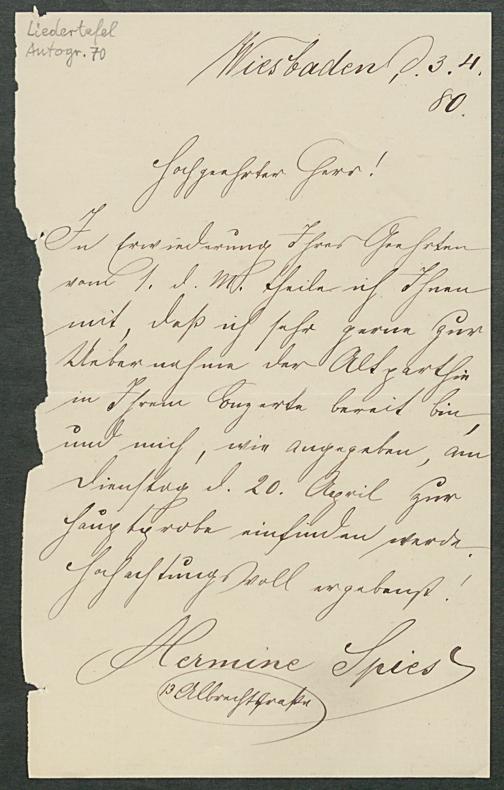 Liedertafel
Autogr. 70
Wiesbaden, d. 3. 4.
80.
Hochgeehrter Herr!
In Erwiederung Ihres Geehrten
vom 1. d. M. theile ich Ihnen
mit, daß ich sehr gerne zur
Uebernahme der Altparthie
in Ihrem Conzerte bereit bin,
und mich, wie angegeben, am
Dienstag d. 20. April zur
Hauptprobe einfinden werde.
Hochachtungsvoll ergebenst!
Hermine Spies
13 Albrechtstraße